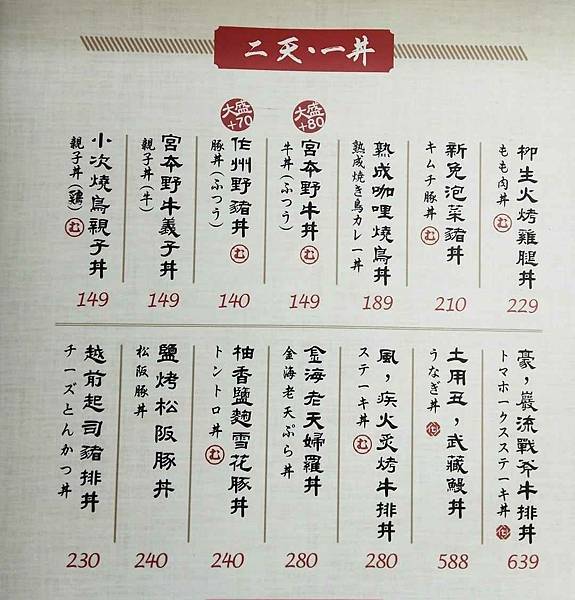 二天・一丼
柳生火烤雞腿丼
もも肉丼 む
229
新免泡菜豬丼
キムチ豚丼 む
210
熟成咖哩燒鳥丼
熟成焼き鳥カレー丼
189
大盛+80
宮本野牛丼 む
牛丼(ふつう)
149
大盛+70
作州野豬丼 む
豚丼(ふつう)
140
宮本野牛義子丼
親子丼(牛)
149
小次燒鳥親子丼
親子丼(鶏) む
149
豪，巖流戰斧牛排丼
トマホークスステーキ丼
639
土用丑，武藏鰻丼
うなぎ丼
588
風，疾火炙烤牛排丼
ステーキ丼 む
280
金海老天婦羅丼
金海老天ぷら丼
280
柚香鹽麴雪花豚丼
トントロ丼 む
240
鹽烤松阪豚丼
松阪豚丼
240
越前起司豬排丼
チーズとんかつ丼
230